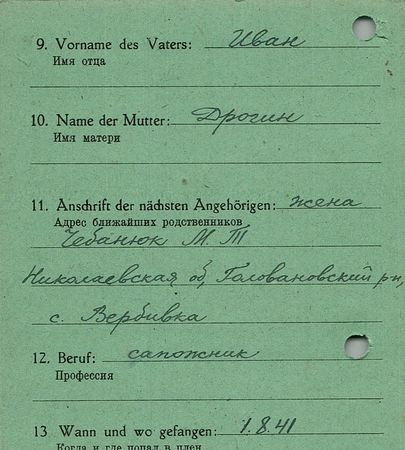 9. Vorname des Vaters: Иван
Имя отца
10. Name der Mutter: Дрогин
Имя матери
11. Anschrift der nächsten Angehörigen: жена
Адрес ближайших родственников
Чебанюк М. Т
Николаевская об, Головановский рн,
с. Вербивка
12. Beruf: сапожник
Профессия
13 Wann und wo gefangen: 1.8.41
Когда и где попал в плен